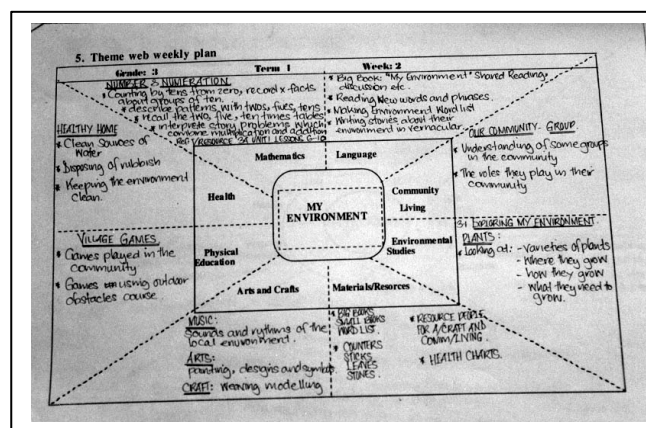 5. Theme web weekly plan
Grade: 3 Term 1 Week: 2
NUMBER & NUMERATION
* Counting by tens from zero, record x-facts
about groups of ten.
* describe patterns with twos, fives, tens
* recall the two, five, ten times tables
* interpret story problems which
combine multiplication and addition
UNIT 1 LESSONS 6-10
Mathematics
* Big Book: "My Environment" Shared Reading,
discussion etc.
* Reading New words and phrases.
* Making Environment Word list
* Writing stories about their
environment in vernacular.
Language
HEALTHY HOME
* Clean Sources of
Water
* Disposing of rubbish
* Keeping the environment
clean.
Health
OUR COMMUNITY - GROUP
* Understanding of some groups
in the community
* The roles they play in their
community
Community
Living
MY
ENVIRONMENT
VILLAGE GAMES
* Games played in the
community
* Games using outdoor
obstacles course
Physical
Education
3.1 EXPLORING MY ENVIRONMENT
PLANTS:
* Looking at: - varieties of plants
- where they grow
- how they grow
- what they need to
grow.
Environmental
Studies
Arts and Crafts
MUSIC:
Sounds and rythms of the
local environment.
ARTS:
painting, designs and symbols
CRAFT: Weaving modelling
Materials/Resorces
* BIG BOOKS
SMALL BOOKS
WORD LIST.
* COUNTERS
STICKS
LEAVES
STONES.
* RESOURCE PEOPLE
FOR A/CRAFT AND
COMM/LIVING.
* HEALTH CHARTS.